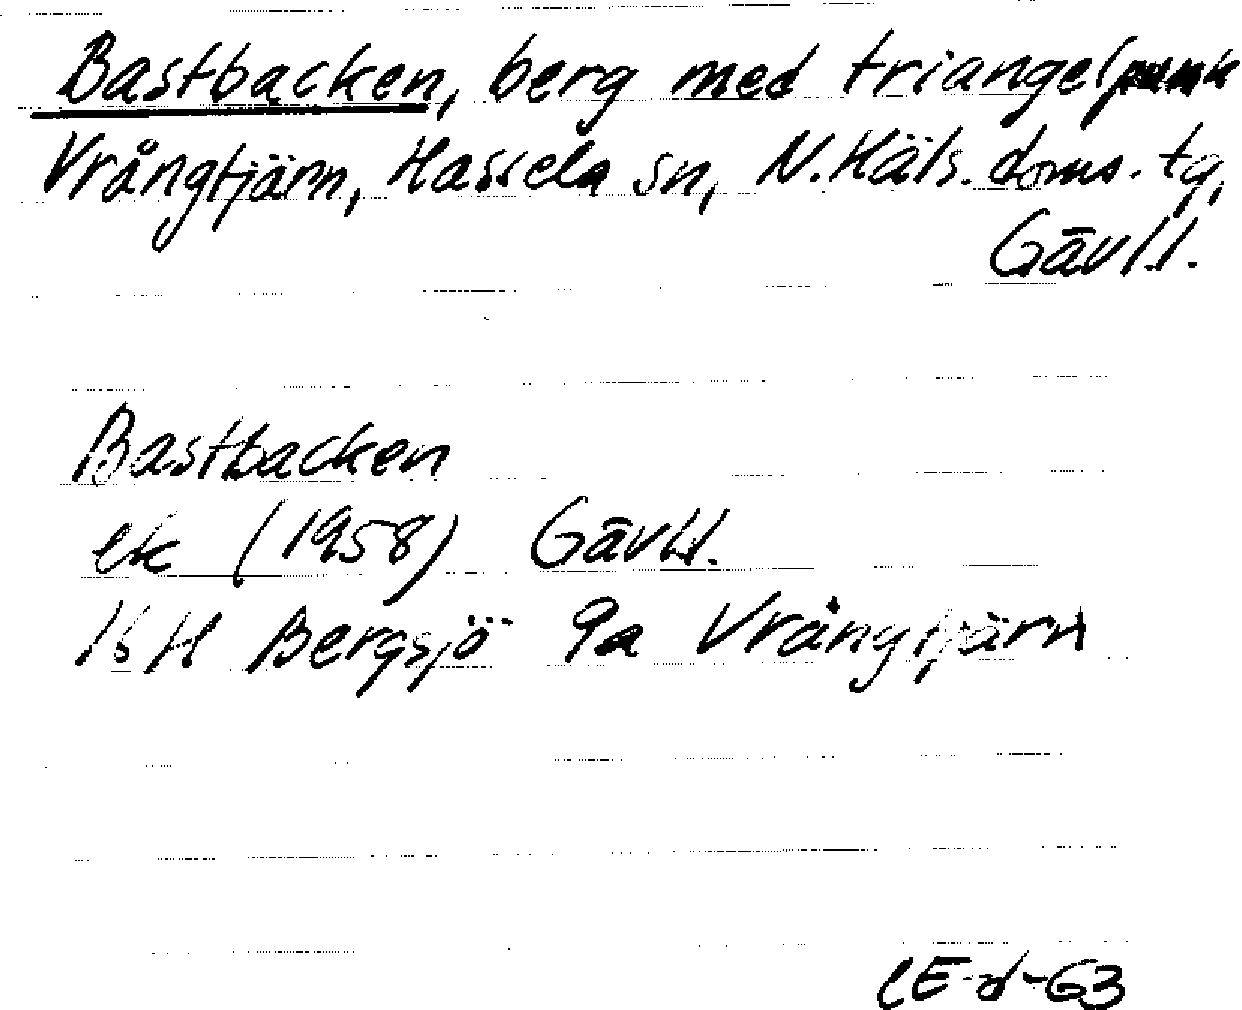 Bastbacken, berg med triangelpunk
Vrångtjärn, Hassela sn, N.Häls. doms. tg,
Gävl.l.
Bastbacken
ek (1958) Gävl.l.
16 H Bergsjö 9a Vrångtjärn
CE-d-63